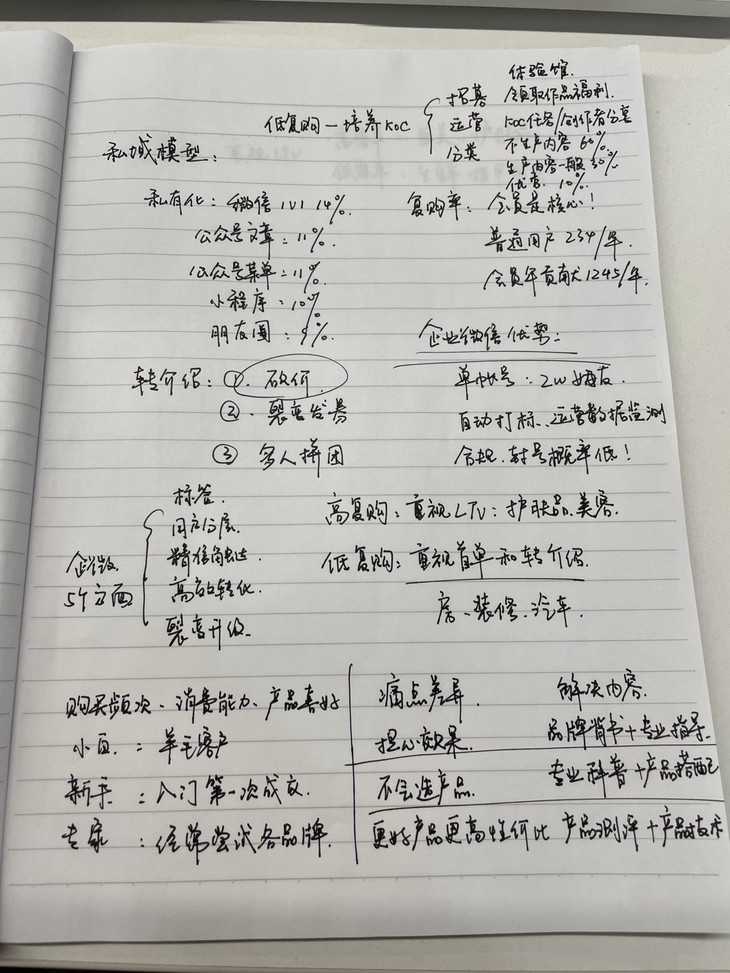 体验馆.
招募 领取作品福利.
低复购—培养KOC 运营 KOC任务/创作者分享
分类 不生产内容 60%.
私域模型: 生产内容一般 30%
优秀. 10%.
私有化: 微信1V1 14%. 复购率: 会员是核心!
公众号文章: 11%. 普通用户 234/年.
公众号菜单: 11% 会员年贡献 1245/年.
小程序: 10%
朋友圈: 9%. 企业微信优势:
转介绍: ①. 砍价 单帐号: 2W好友.
②. 裂变发券 自动打标、运营数据监测
③ 多人拼团 合规.封号概率低!
标签. 高复购: 重视LTV: 护肤品.美容.
用户分层.
企微 精信触达 低复购: 重视首单和转介绍.
5个方面 高效转化.
裂变升级. 房、装修、汽车.
购买频次、消费能力、产品喜好 痛点差异. 解决内容.
小白: 羊毛客户 担心效果. 品牌背书+专业指导.
新手: 入门第一次成交. 不会选产品. 专业科普+产品搭配
专家: 经常尝试各品牌. 更好产品更高性价比 产品测评+产品技术